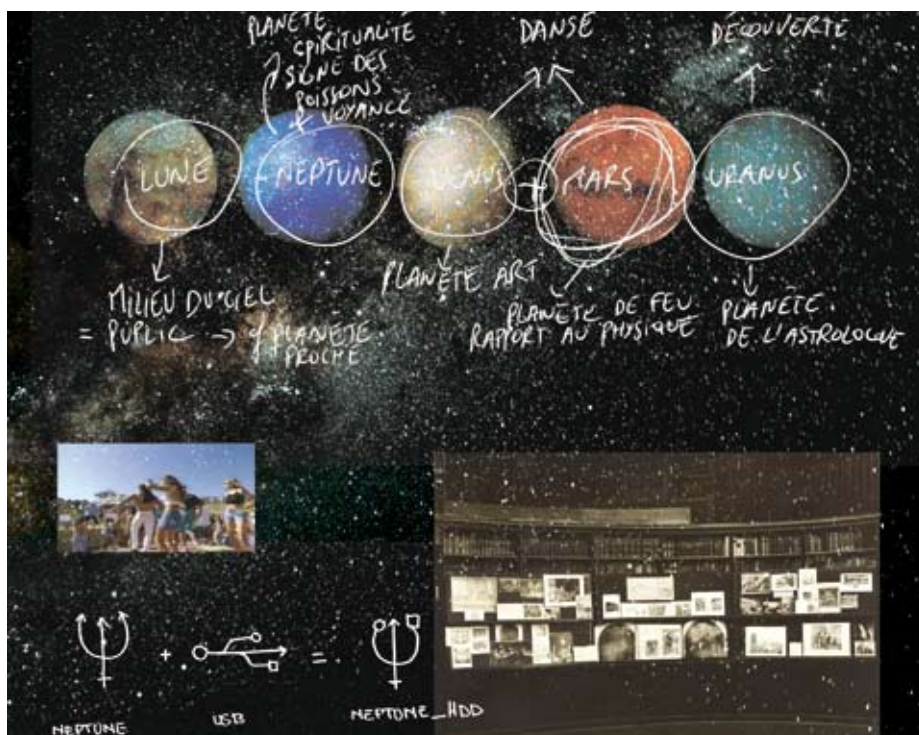 PLANÈTE
SPIRITUALITÉ
SIGNE DES
POISSONS
& VOYANCE
DANSE
DÉCOUVERTE
LUNE
NEPTUNE
VENUS
+
MARS
URANUS
MILIEU DU CIEL
= PUBLIC → PLANÈTE
PROCHE
PLANÈTE ART
PLANÈTE DE FEU
RAPPORT AU PHYSIQUE
PLANÈTE
DE L'ASTROLOGUE
+ =
NEPTUNE USB NEPTUNE_HDD